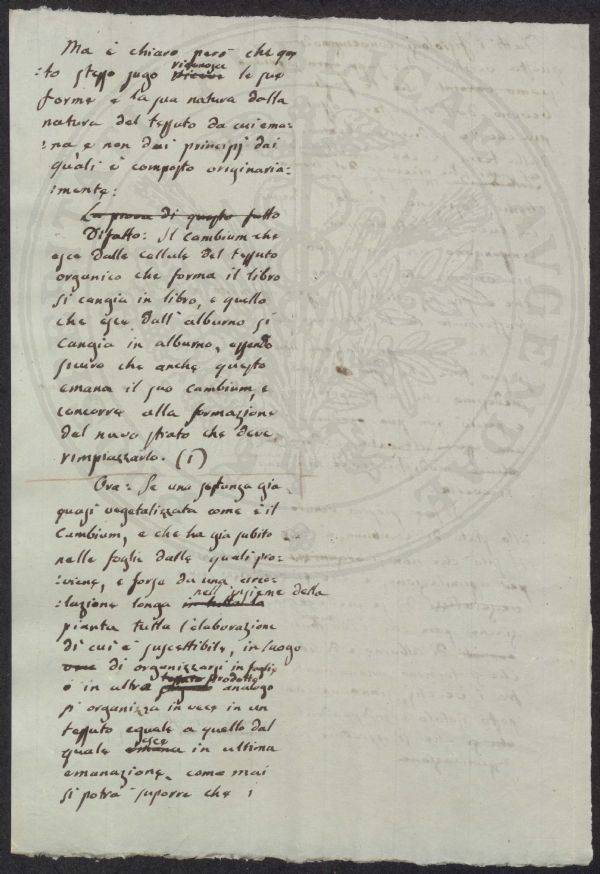 Ma è chiaro però che ques
:to stesso sugo riconosce riceve le sue
forme e la sua natura dalla
natura del tessuto da cui ema:
:na e non dai principj dai
quali è composto originaria:
:mente:
La prova di questo fatto
Difatto: Il Cambium che
esce dalle cellule del tessuto
organico che forma il libro
si cangia in libro, e quello
che esce dall' alburno si
cangia in alburno, essendo
sicuro che anche questo
emana il suo cambium, e
concorre alla formazione
del nuovo strato che deve
rimpiazzarlo. (1)
Ora: Se una sostanza già
quasi vegetalizzata come è il
Cambium, e che ha già subito
nelle foglie dalle quali pro:
:viene, e forse da una circo:
:lazione longa in tutta la nell' insieme della
pianta tutta l'elaborazione
di cui è suscettibile, in luogo
di organizzarsi in foglie
o in altro tessuto prodotto analogo
si organizza in vece in un
tessuto eguale a quello dal
quale emana esce in ultima
emanazione, come mai
si potrà supporre che i